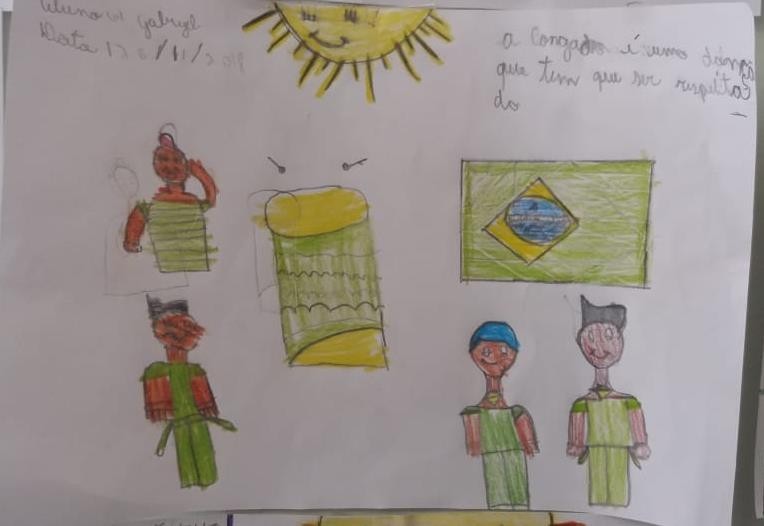 Gabryel
Data 12 / 11 / 2018
a congado é uma dança
que tem que ser respeita
do